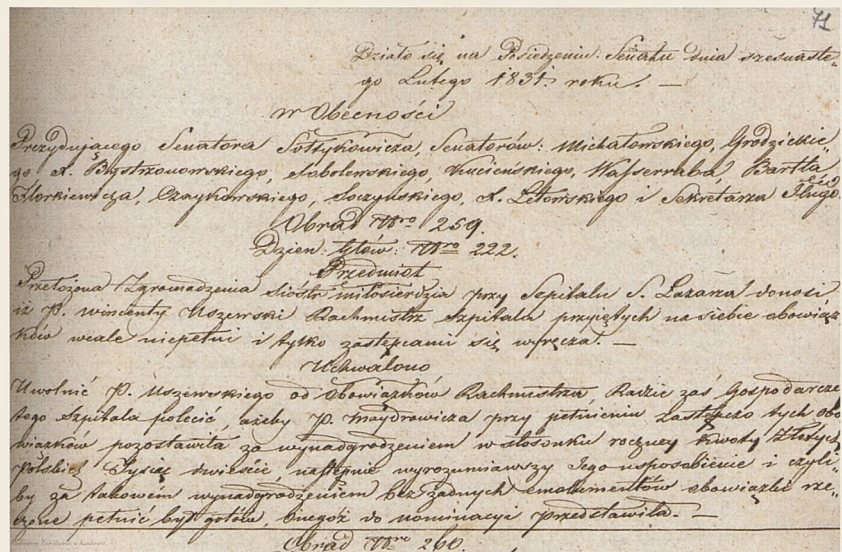 71
Działo się na Posiedzeniu Senatu dnia szesnaste-
go Lutego 1831 roku. —
w Obecności
Prezydującego Senatora Sołtykowicza, Senatorów: Michałowskiego, Grodzickie-
go X. Bystrzonowskiego, Sobolewskiego, Kucieńskiego, Wasserraba, Bartla
Florkiewicza, Czaykowskiego, Soczyńskiego, X. Łętowskiego i Sekretarza
Obrad Nro 259.
Dzien: Głów: Nro 222.
Przedmiot
Przełożona Zgromadzenia Sióstr miłosierdzia przy Szpitalu S. Łazarza donosi
iż P. Wincenty Uszewski Rachmistrz Szpitala przyjętych na siebie obowiąz-
ków wcale niepełni i tylko zastępcami się wyręcza. —
Uchwalono
Uwolnić P. Uszewskiego od obowiązków Rachmistrza, Radzie zaś Gospodarcze
tego Szpitala polecić, ażeby P. Maydrowicza przy pełnieniu zastępczo tych obo
wiązków pozostawiła za wynadgrodzeniem w stosunku roczney kwoty Złotych
Polskich Tysiąc dwieście następnie wyrozumiawszy Jego usposobienie i czyli-
by za takowem wynadgrodzeniem bez żadnych emolumentów obowiązki rze-
czone pełnić był gotów, onegoż do nominacyi przedstawiła. —
Obrad Nro 260.